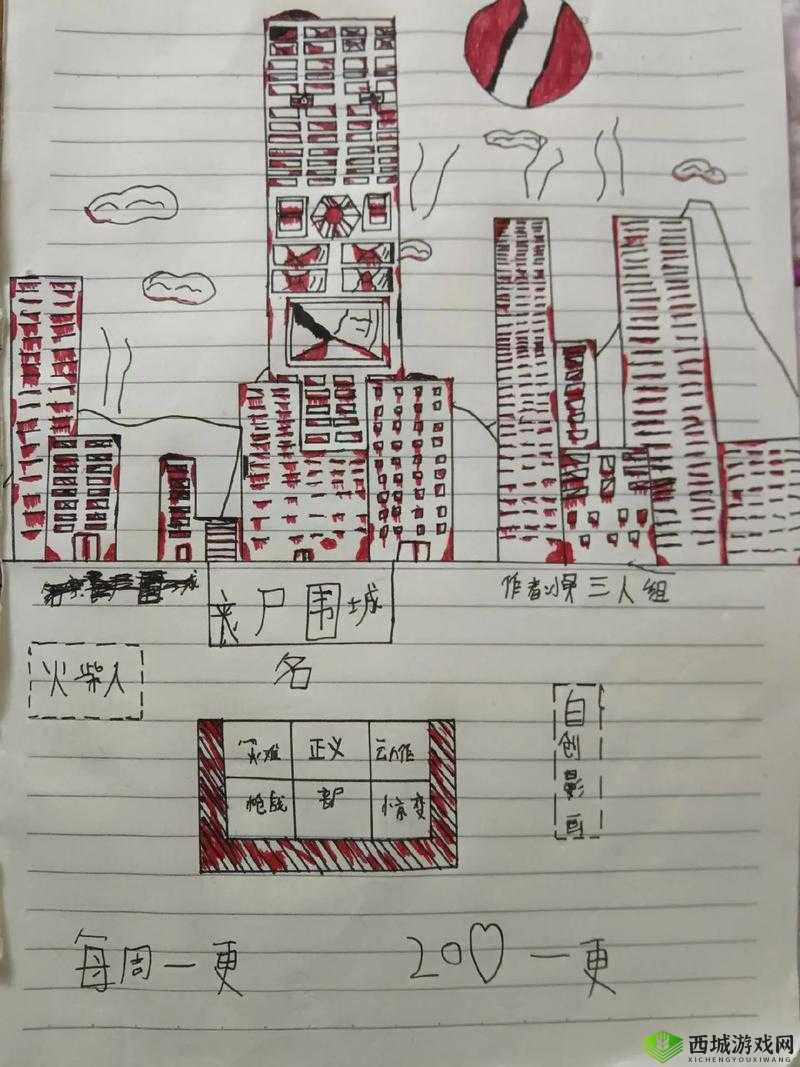 丧尸围城
作者 三人组
火柴人
名
灾难 正义 动作
枪战 丧尸 惊变
自创影画
每周一更
20♡一更
西城游戏网
XICHENGYOUXIWANG